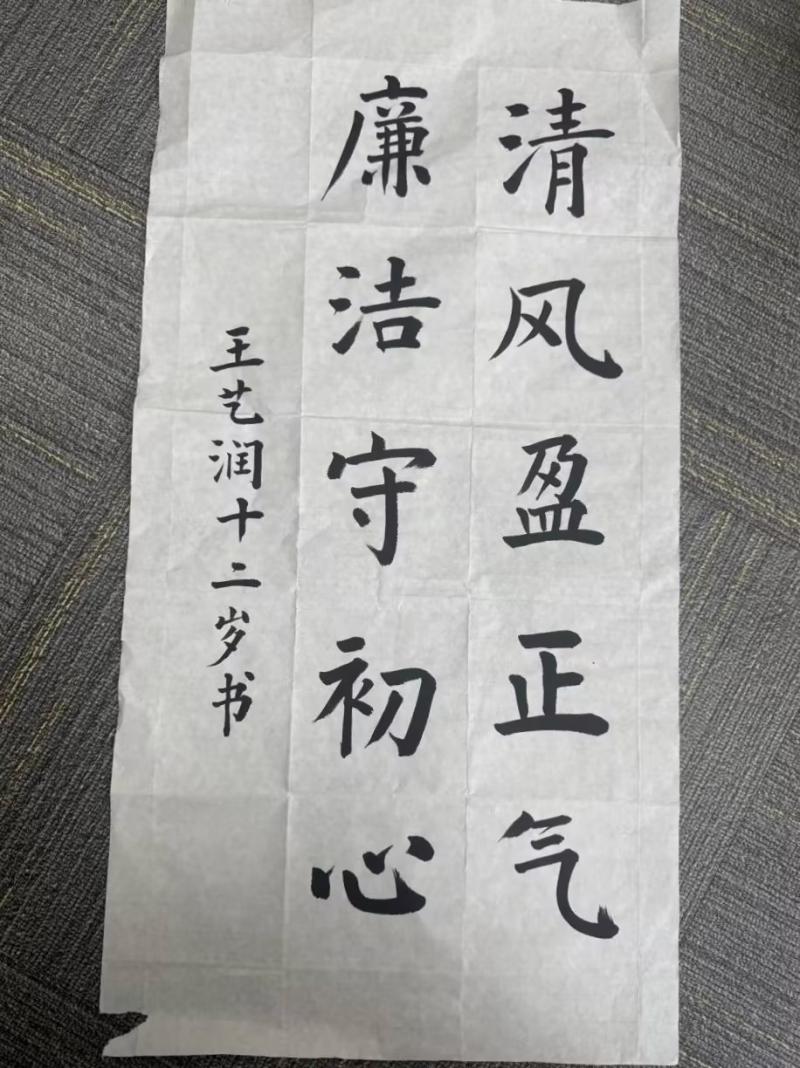 清风盈正气
廉洁守初心
王艺润十二岁书